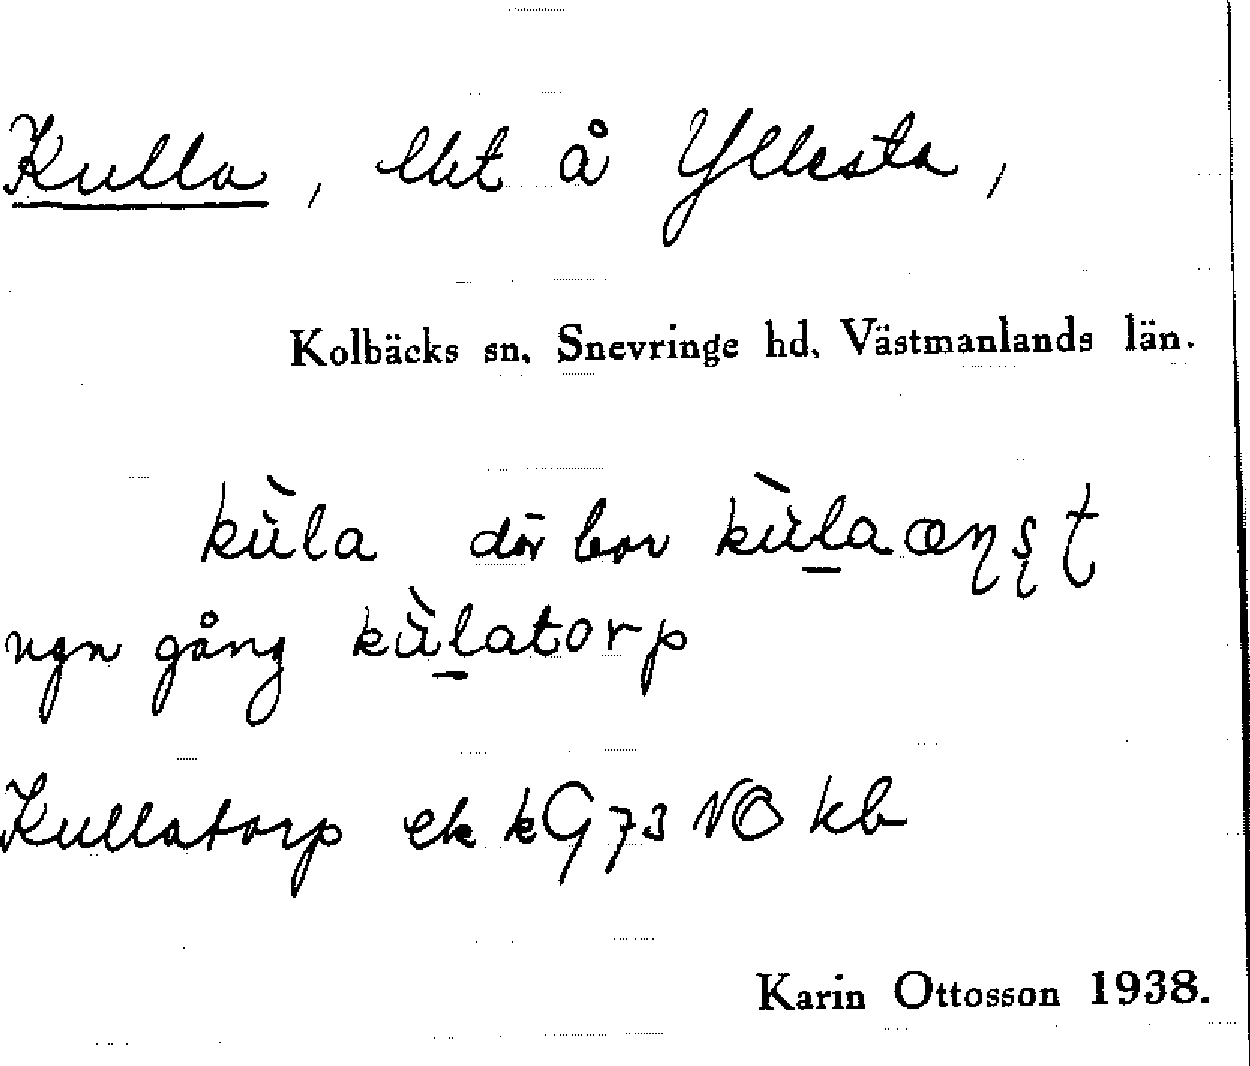 Kulla, lht å Yllesta,
Kolbäcks sn. Snevringe hd. Västmanlands län.
kùla där bor kùla
ngn gång kùlatorp
Kullatorp ek kG 73 NO kb
Karin Ottosson 1938.